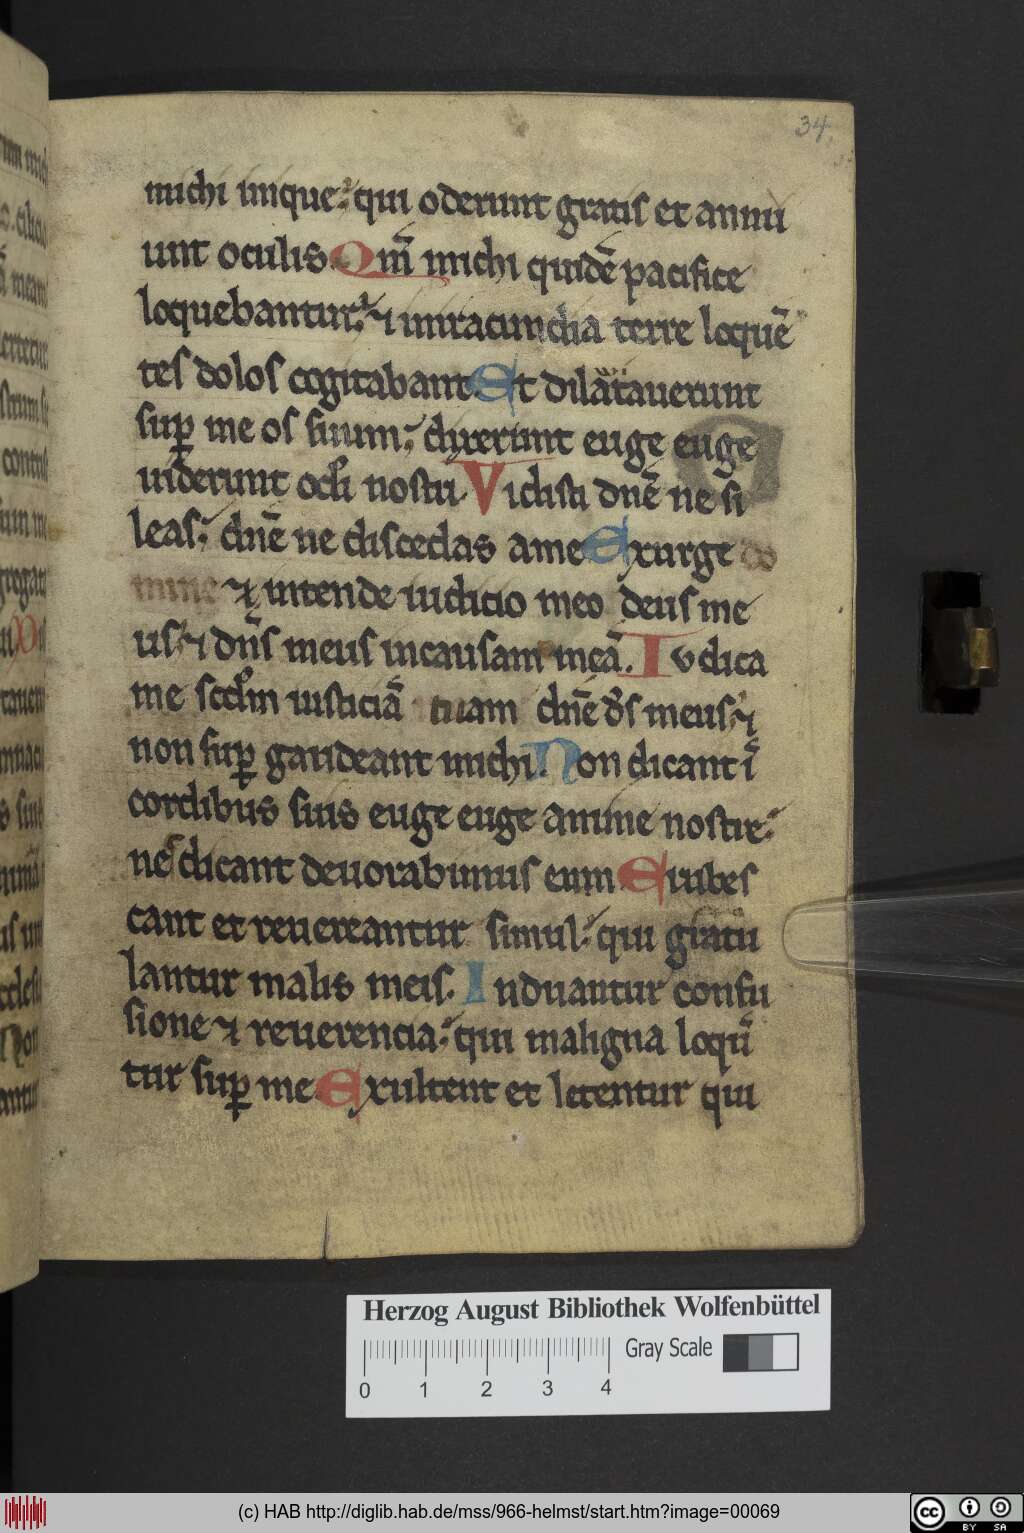 34
michi inique: qui oderunt gratis et annu
unt oculis. Qm̄ michi quidē pacifice
loquebantur: ⁊ in iracundia terre loquē
tes dolos cogitabant. Et dilatauerunt
suꝑ me os suum: dixerunt euge euge
uiderunt oc̄li nostri. Vidisti dn̄e ne si
leas: dn̄e ne discedas a me. Exurge do
mine ⁊ intende iudicio meo deus me
us: ⁊ dn̄s meus in causam meā. Iudica
me scd̄m iusticiā tuam dn̄e ds̄ meus: ⁊
non suꝑ gaudeant michi. Non dicant ī
cordibus suis euge euge anime nostre:
nec dicant deuorabimus eum. Erubes
cant et reuereantur simul: qui gratu
lantur malis meis. Induantur confu
sione ⁊ reuerencia: qui maligna loqū
tur suꝑ me. Exultent et letentur qui
Herzog August Bibliothek Wolfenbüttel
Gray Scale
0 1 2 3 4
(c) HAB http://diglib.hab.de/mss/966-helmst/start.htm?image=00069
cc BY SA